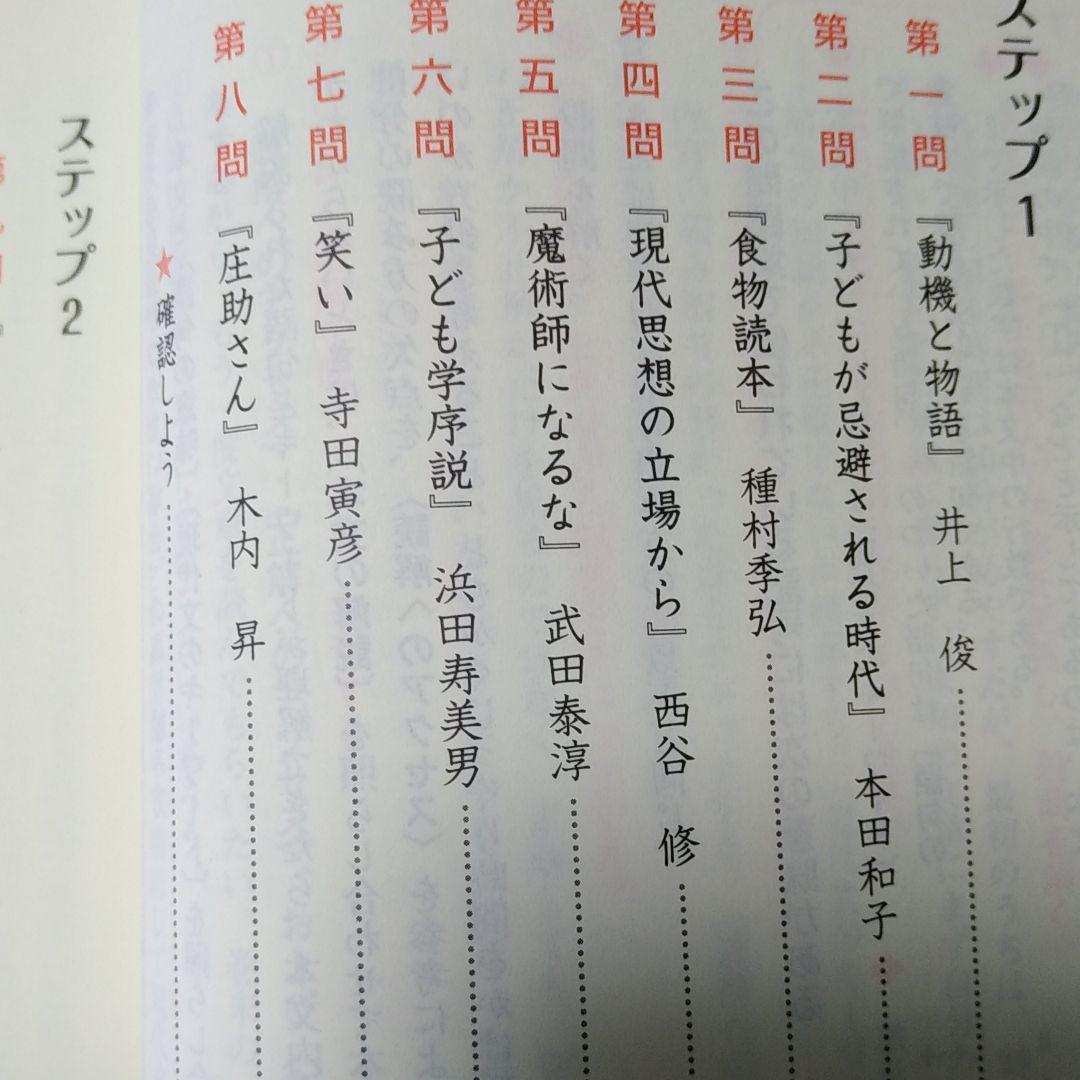 ステップ1
第一問 『動機と物語』 井上 俊
第二問 『子どもが忌避される時代』 本田和子
第三問 『食物読本』 種村季弘
第四問 『現代思想の立場から』 西谷 修
第五問 『魔術師になるな』 武田泰淳
第六問 『子ども学序説』 浜田寿美男
第七問 『笑い』 寺田寅彦
第八問 『庄助さん』 木内 昇
★ 確認しよう
ステップ2